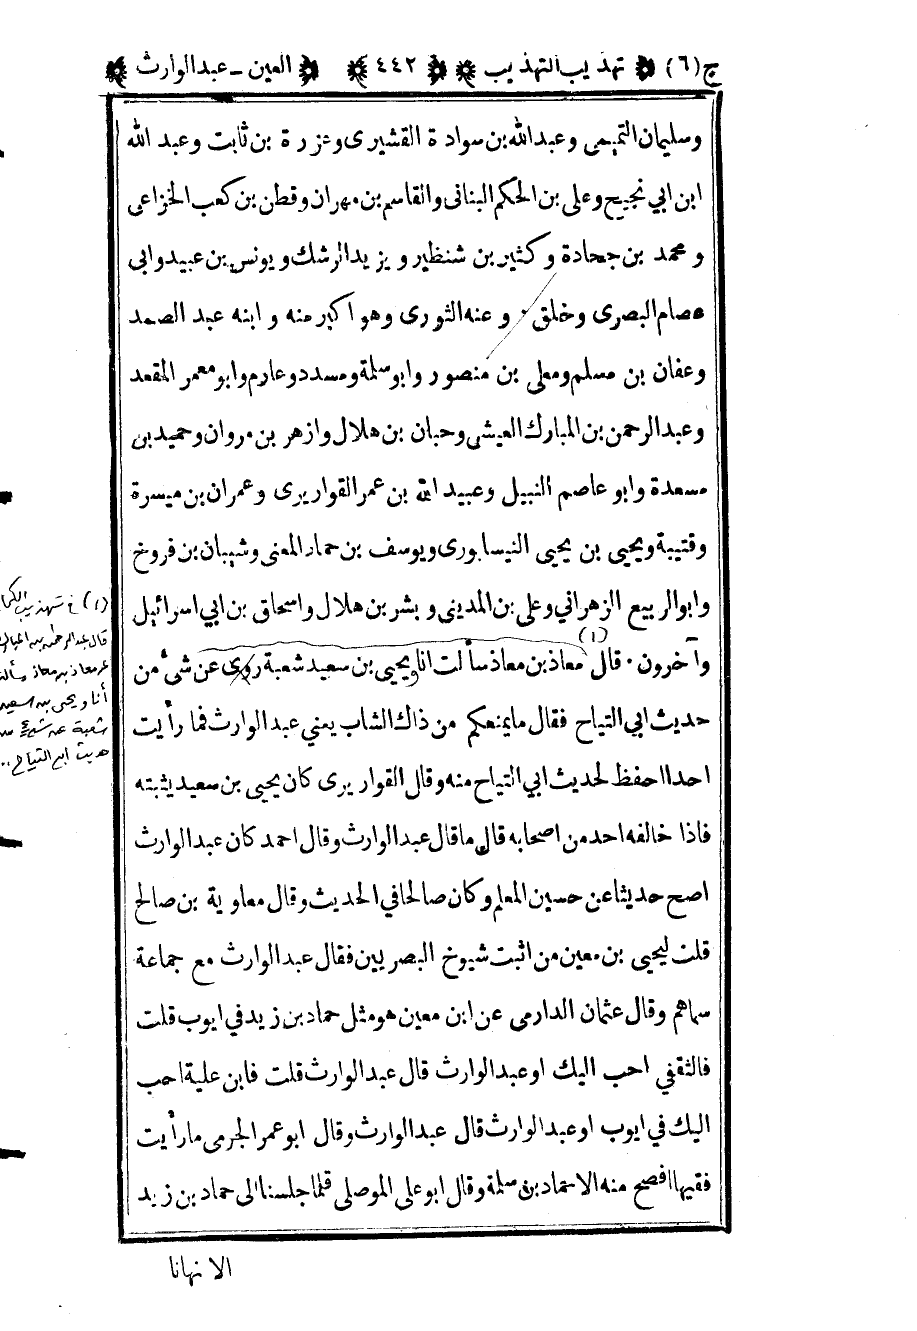 ج(٦) تهذيب التهذيب ٤٤٢ العين - عبدالوارث
وسليمان التميمى وعبدالله بن سوادة القشيرى وعزرة بن ثابت وعبد الله
ابن ابي نجيح وعلى بن الحكم البنانى والقاسم بن مهران وقطن بن كعب الخزاعى
و محمد بن جحادة و كثير بن شنظير و يزيد الرشك ويونس بن عبيد وابى
عصام البصرى وخلق • و عنه الثورى وهو اكبر منه و ابنه عبد الصمد
وعفان بن مسلم ومعلى بن منصور وابو سلمة ومسدد وعارم وابو معمر المقعد
وعبدالرحمن بن المبارك العيشى وحبان بن هلال وازهر بن مروان وحميد بن
مسعدة وابو عاصم النبيل وعبيد الله بن عمر القواريرى وعمران بن ميسرة
وقتيبة ويحيى بن يحيى النيسابورى ويوسف بن حماد المعنى وشيبان بن فروخ
وابوالربيع الزهراني وعلى بن المدينى وبشر بن هلال واسحاق بن ابي اسرائيل
وآخرون • قال معاذ بن معاذ سألت انا ويحيى بن سعيد شعبة روى عن شئ من
(١)
حديث ابي التياح فقال مايمنعكم من ذاك الشاب يعني عبدالوارث فما رأيت
احدا احفظ لحديث ابي التياح منه وقال القواريرى كان يحيى بن سعيد يثبته
فاذا خالفه احد من اصحابه قال ماقال عبدالوارث وقال احمد كان عبدالوارث
اصح حديثا عن حسين المعلم وكان صالحا في الحديث وقال معاوية بن صالح
قلت ليحيى بن معين من اثبت شيوخ البصريين فقال عبدالوارث مع جماعة
سماهم وقال عثمان الدارمى عن ابن معين هو مثل حماد بن زيد في ايوب قلت
فالثقفي احب اليك او عبدالوارث قال عبدالوارث قلت فابن علية احب
اليك في ايوب او عبدالوارث قال عبدالوارث وقال ابو عمر الجرمى مارأيت
فقيها افصح منه الا حماد بن سلمة وقال ابو على الموصلى قلما جلسنا الى حماد بن زيد
الا نهانا
(١) في تهذيب الكما
قال عبدالرحمن بن
عن معاذ بن معاذ سألت
أنا ويحيى بن سعيد
شعبة عن شيء من
حديث أبي التياح ..